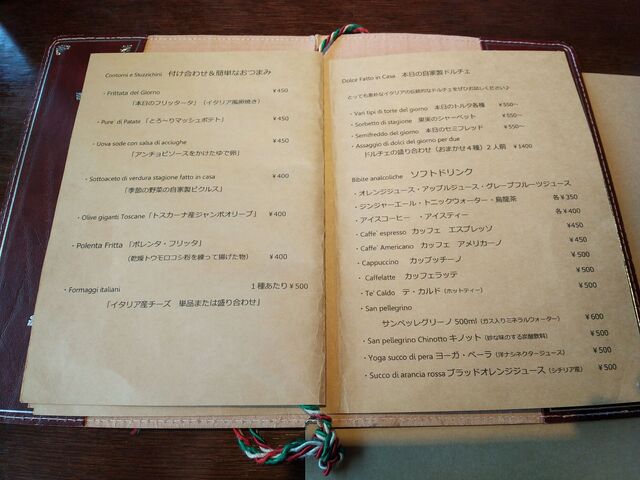 Contorni e Stuzzichini 付け合わせ＆簡単なおつまみ
・Frittata del Giorno ￥450
「本日のフリッタータ」（イタリア風卵焼き）
・Pure' di Patate「とろ～りマッシュポテト」 ￥450
・Uova sode con salsa di acciughe ￥450
「アンチョビソースをかけたゆで卵」
・Sottoaceto di verdura stagione fatto in casa ￥400
「季節の野菜の自家製ピクルス」
・Olive giganti Toscane「トスカーナ産ジャンボオリーブ」 ￥400
・Polenta Fritta「ポレンタ・フリッタ」
（乾燥トウモロコシ粉を練って揚げた物） ￥400
・Formaggi italiani １種あたり￥500
「イタリア産チーズ 単品または盛り合わせ」
Dolce Fatto in Casa 本日の自家製ドルチェ
とっても素朴なイタリアの伝統的なドルチェをぜひお試しください♪
・Vari tipi di torte del giorno 本日のトルタ各種 ￥550～
・Sorbetto di stagione 果実のシャーベット ￥550～
・Semifreddo del giorno 本日のセミフレッド ￥550～
・Assaggio di dolci del giorno per due
ドルチェの盛り合わせ（おまかせ４種）２人前 ￥1400
Bibite analcoliche ソフトドリンク
・オレンジジュース・アップルジュース・グレープフルーツジュース
・ジンジャーエール・トニックウォーター・烏龍茶 各￥350
・アイスコーヒー ・アイスティー 各￥400
・Caffe` espresso カッフェ エスプレッソ ￥450
・Caffe` Americano カッフェ アメリカーノ ￥450
・Cappuccino カップッチーノ ￥500
・Caffelatte カッフェラッテ ￥500
・Te' Caldo テ・カルド（ホットティー） ￥500
・San pellegrino
サンペッレグリーノ 500ml（ガス入りミネラルウォーター） ￥600
・San pellegrino Chinotto キノット（妙な味のする炭酸飲料） ￥500
・Yoga succo di pera ヨーガ・ペーラ（洋ナシネクタージュース） ￥500
・Succo di arancia rossa ブラッドオレンジジュース（シチリア産） ￥500